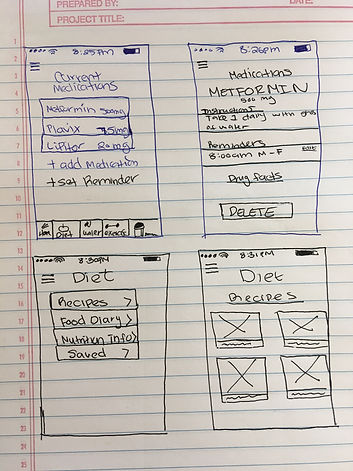 PREPARED BY:
DATE:
PROJECT TITLE:
1
2
3
4
5
6
7
8
9
10
11
12
13
14
15
16
17
18
19
20
21
22
23
24
25
8:25PM
Current
Medications
Metformin 500mg
Plavix 75mg
Lipitor 20mg
+ add Medication
+ set Reminder
Diet
water
exercise
8:26pm
Medications
METFORMIN
500 mg
Instructions
Take 1 daily with glass
of water
Reminders
Edit
8:00am M-F
Drug facts
DELETE
8:30PM
Diet
Recipes >
Food Diary >
Nutrition Info >
Saved >
8:31PM
Diet
Recipes